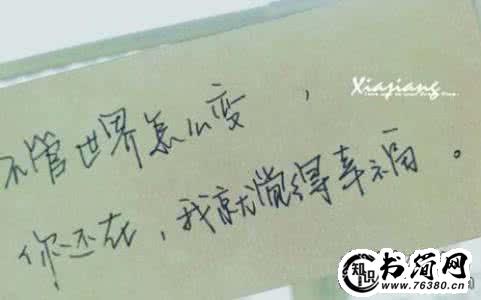 不管世界怎么变，
你还在，我就觉得幸福。
Xiajiang
知识
书简网
www.76380.cn